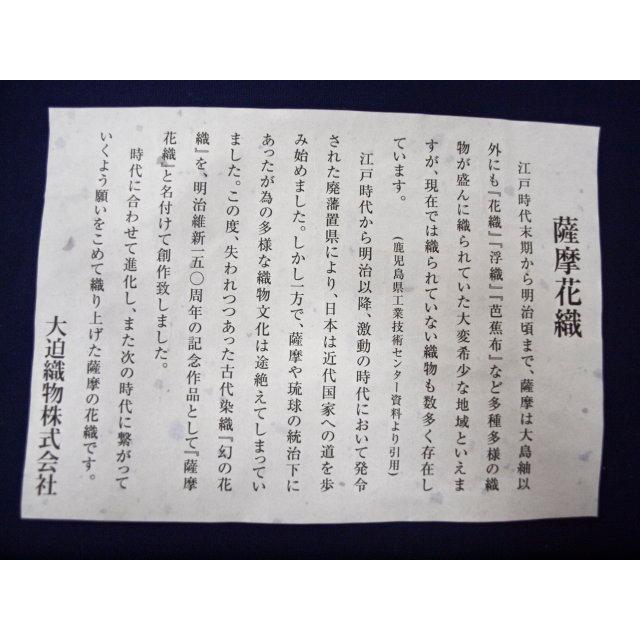 薩摩花織
江戸時代末期から明治頃まで、薩摩は大島紬以
外にも『花織』『浮織』『芭蕉布』など多種多様の織
物が盛んに織られていた大変希少な地域といえま
すが、現在では織られていない織物も数多く存在し
ています。
(鹿児島県工業技術センター資料より引用)
江戸時代から明治以降、激動の時代において発令
された廃藩置県により、日本は近代国家への道を歩
み始めました。しかし一方で、薩摩や琉球の統治下に
あったが為の多様な織物文化は途絶えてしまってい
ました。この度、失われつつあった古代染織『幻の花
織』を、明治維新一五〇周年の記念作品として『薩摩
花織』と名付けて創作致しました。
時代に合わせて進化し、また次の時代に繋がって
いくよう願いをこめて織り上げた薩摩の花織です。
大迫織物株式会社